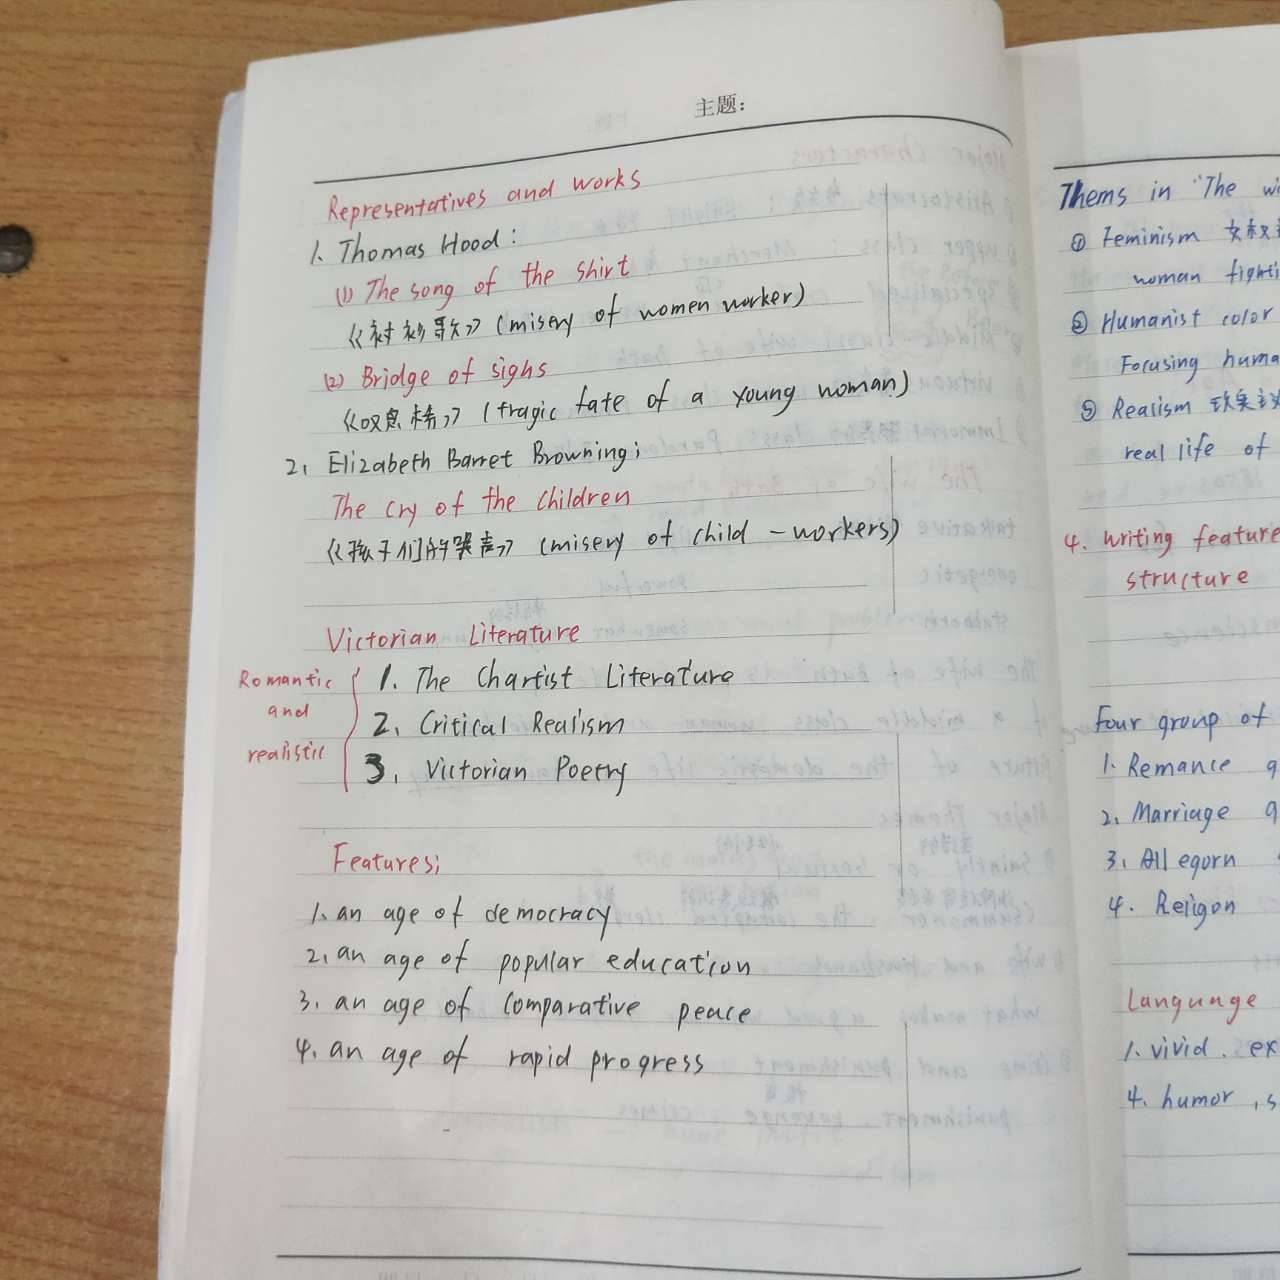 主题:
Representatives and works
1. Thomas Hood:
(1) The song of the shirt
《衬衫歌》 (misery of women worker)
(2) Bridge of sighs
《叹息桥》 (tragic fate of a young woman)
2. Elizabeth Barret Browning:
The cry of the children
《孩子们的哭声》 (misery of child-workers)
Victorian Literature
Romantic and realistic
1. The Chartist Literature
2. Critical Realism
3. Victorian Poetry
Features:
1. an age of democracy
2. an age of popular education
3. an age of comparative peace
4. an age of rapid progress
Thems in "The
① Feminism 女权
woman
② Humanist color
Focusing
③ Realism 现实主义
real life of
4. writing feature
structure
Four group of
1. Remance
2. Marriage
3. Allegorn
4. Religon
Languange
1. vivid.
4. humor,